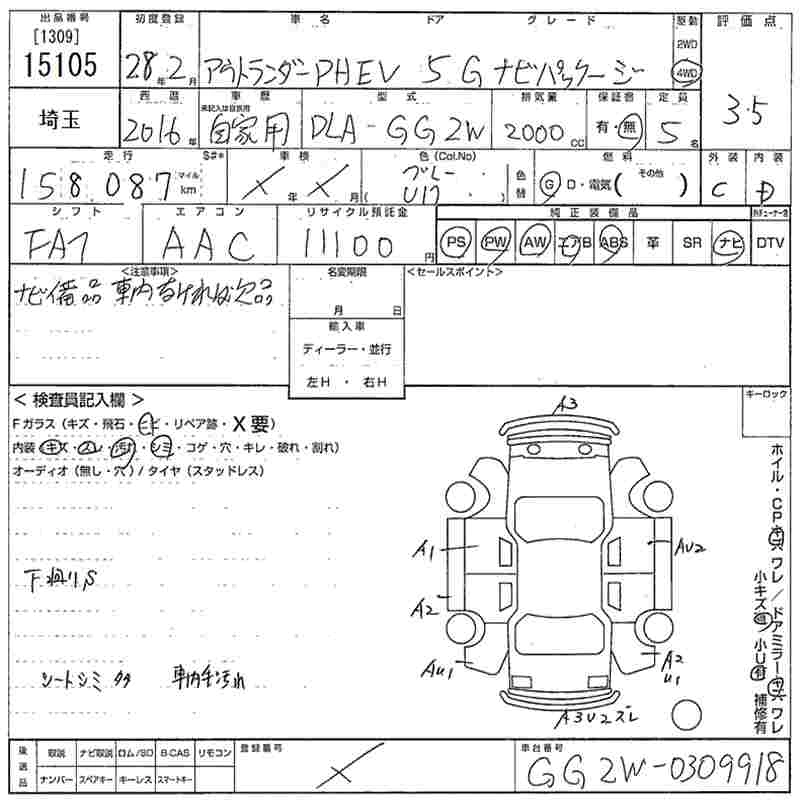 出品番号 初度登録 車名 ドア グレード 駆動 評価点
[1309] 15105 28年2月 アウトランダーPHEV 5 G ナビパッケージ 2WD 4WD 3.5
埼玉 西暦 車歴 型式 排気量 保証書 定員
未記入は自家用
2016年 自家用 DLA-GG2W 2000cc 有・無 5名
走行 S#* 車検 色(Col.No) 燃料 外装 内装
158087 マイル km X年X月 ( グレー U17 ) 色替 G D・電気( その他 ) C D
シフト エアコン リサイクル預託金 純正装備品
FA7 AAC 11100円 PS PW AW エアB ABS 革 SR ナビ DTV
<注意事項> 名変期限 <セールスポイント>
ナビ備品 車内なければ欠品
月 日
輸入車
ディーラー・並行
左H ・ 右H
キーロック
<検査員記入欄>
Fガラス (キズ・飛石・ヒビ・リペア跡・X要)
内装 (キズ・スレ・汚れ・シミ・コゲ・穴・キレ・破れ・割れ)
オーディオ (無し・穴) / タイヤ (スタッドレス)
下廻りS
シートシミ
車内キズ汚れ
A3
A1
A2
AU1
AU2
A2
U1
A3U2スレ
ホイル・CPキズワレ/ドアミラーキズワレ
小キズ有 小U有 補修有
後送品 取説 ナビ取説 ロム/SD B-CAS リモコン
ナンバー スペアキー キーレス スマートキー
登録番号 X
車台番号 GG2W-0309918